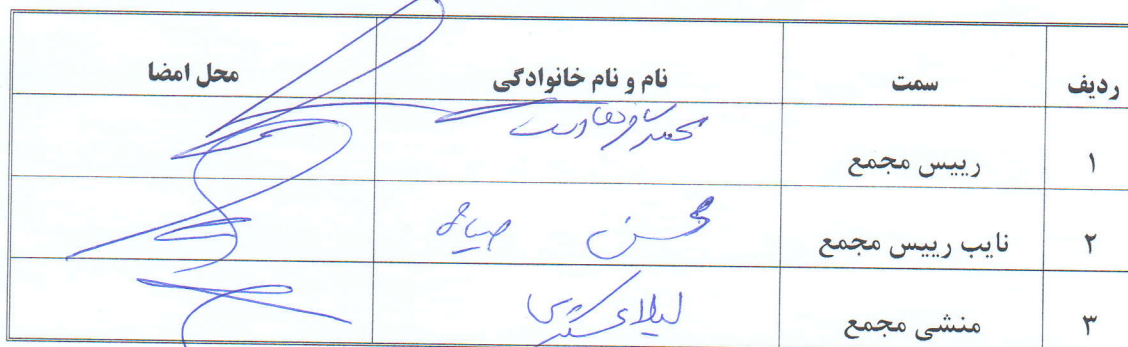 ردیف سمت نام و نام خانوادگی محل امضا
۱ رییس مجمع
۲ نایب رییس مجمع محسن
۳ منشی مجمع لیلا